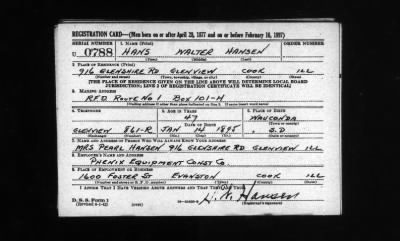 REGISTRATION CARD—(Men born on or after April 28, 1877 and on or before February 16, 1897)
SERIAL NUMBER 1. NAME (Print) ORDER NUMBER
U 0788 HANS WALTER HANSEN
(First) (Middle) (Last)
2. PLACE OF RESIDENCE (Print)
916 GLENSHIRE RD GLENVIEW COOK ILL
(Number and street) (Town, township, village, or city) (County) (State)
[THE PLACE OF RESIDENCE GIVEN ON THE LINE ABOVE WILL DETERMINE LOCAL BOARD
JURISDICTION; LINE 2 OF REGISTRATION CERTIFICATE WILL BE IDENTICAL]
3. MAILING ADDRESS
R.F.D. ROUTE NO 1 BOX 101-H
[Mailing address if other than place indicated on line 2. If same insert word same]
4. TELEPHONE 5. AGE IN YEARS 6. PLACE OF BIRTH
47 WAUCONDA
DATE OF BIRTH (Town or county)
GLENVIEW 861-R JAN 14 1895 S.D
(Exchange) (Number) (Mo.) (Day) (Yr.) (State or country)
7. NAME AND ADDRESS OF PERSON WHO WILL ALWAYS KNOW YOUR ADDRESS
MRS PEARL HANSEN 916 GLENSHIRE RD GLENVIEW ILL
8. EMPLOYER'S NAME AND ADDRESS
PHENIX EQUIPMENT CONST CO.
9. PLACE OF EMPLOYMENT OR BUSINESS
1600 FOSTER ST EVANSTON COOK ILL
(Number and street or R. F. D. number) (Town) (County) (State)
I AFFIRM THAT I HAVE VERIFIED ABOVE ANSWERS AND THAT THEY ARE TRUE.
D. S. S. Form 1
(Revised 4-1-42) (over) H. W. Hansen
(Registrant's signature)